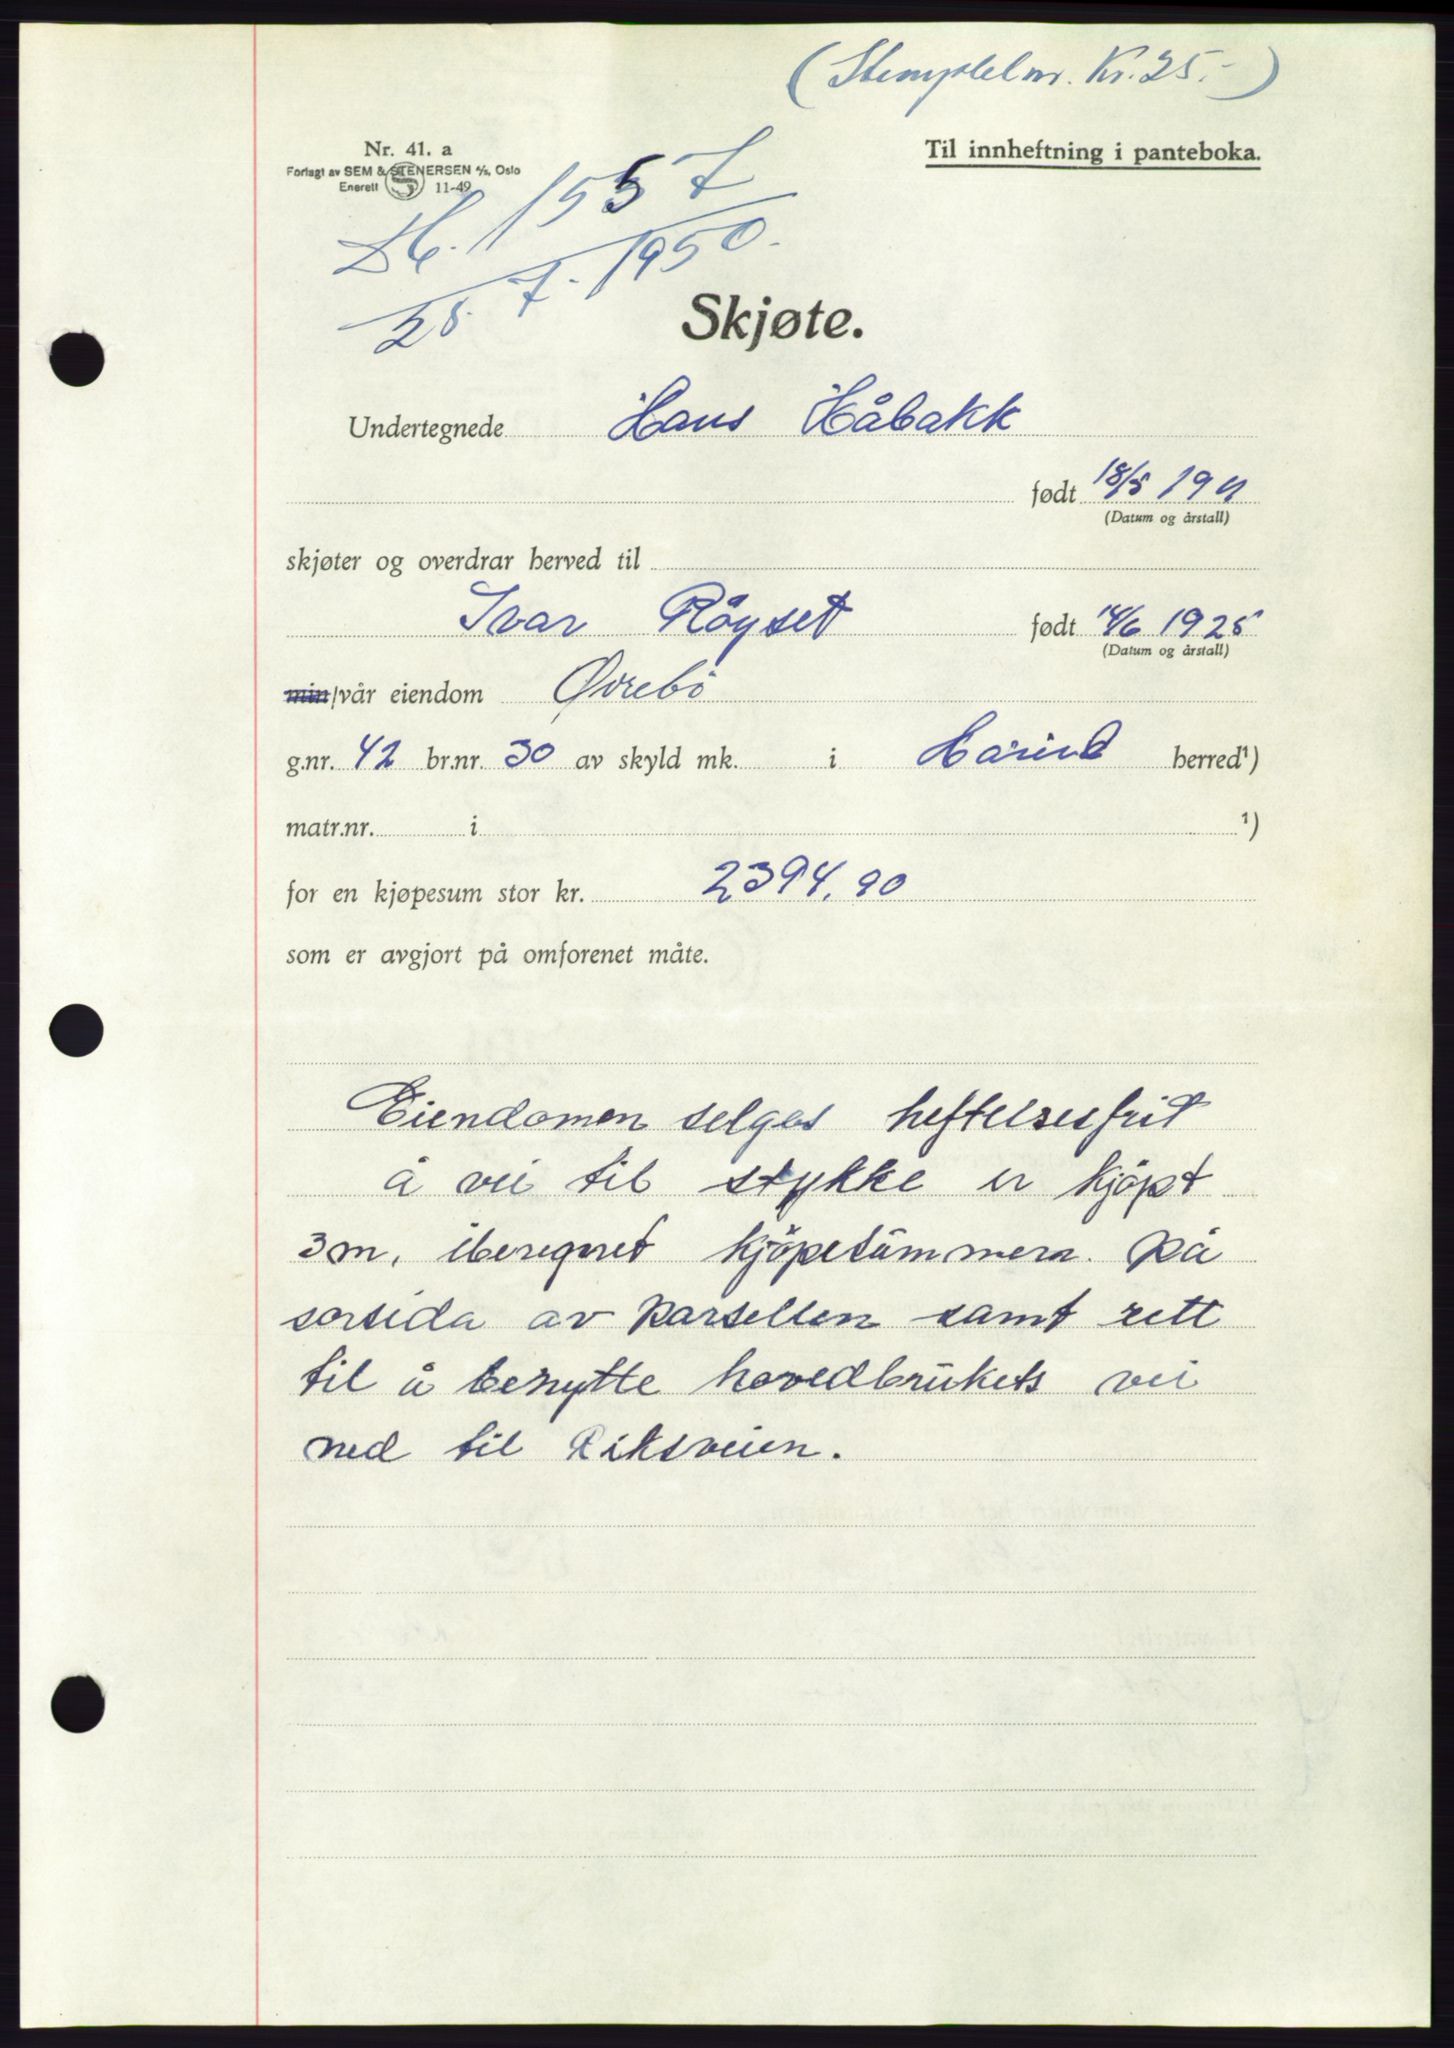 (Stempelm. Kr. 25.-)
Nr. 41. a
Til innheftning i panteboka.
Forlagt av SEM & STENERSEN A/S, Oslo
Enerett 11-49
Db. 1557
25. 7. 1950.
Skjøte.
Undertegnede Hans Håbakk
født 18/5 1911
(Datum og årstall)
skjøter og overdrar herved til
Ivar Röyset født 14/6 1925
(Datum og årstall)
min/vår eiendom Øvrebö
g.nr. 42 br.nr. 30 av skyld mk. i Hareid herred¹)
matr.nr. i ¹)
for en kjøpesum stor kr. 2394,90
som er avgjort på omforenet måte.
Eiendomen selges heftelsesfrit
å vei til stykke er kjöpt
3m, iberegnet kjöpesummen. på
sorsida av parsellen samt rett
til å benytte hovedbrukets vei
ned til Riksveien.